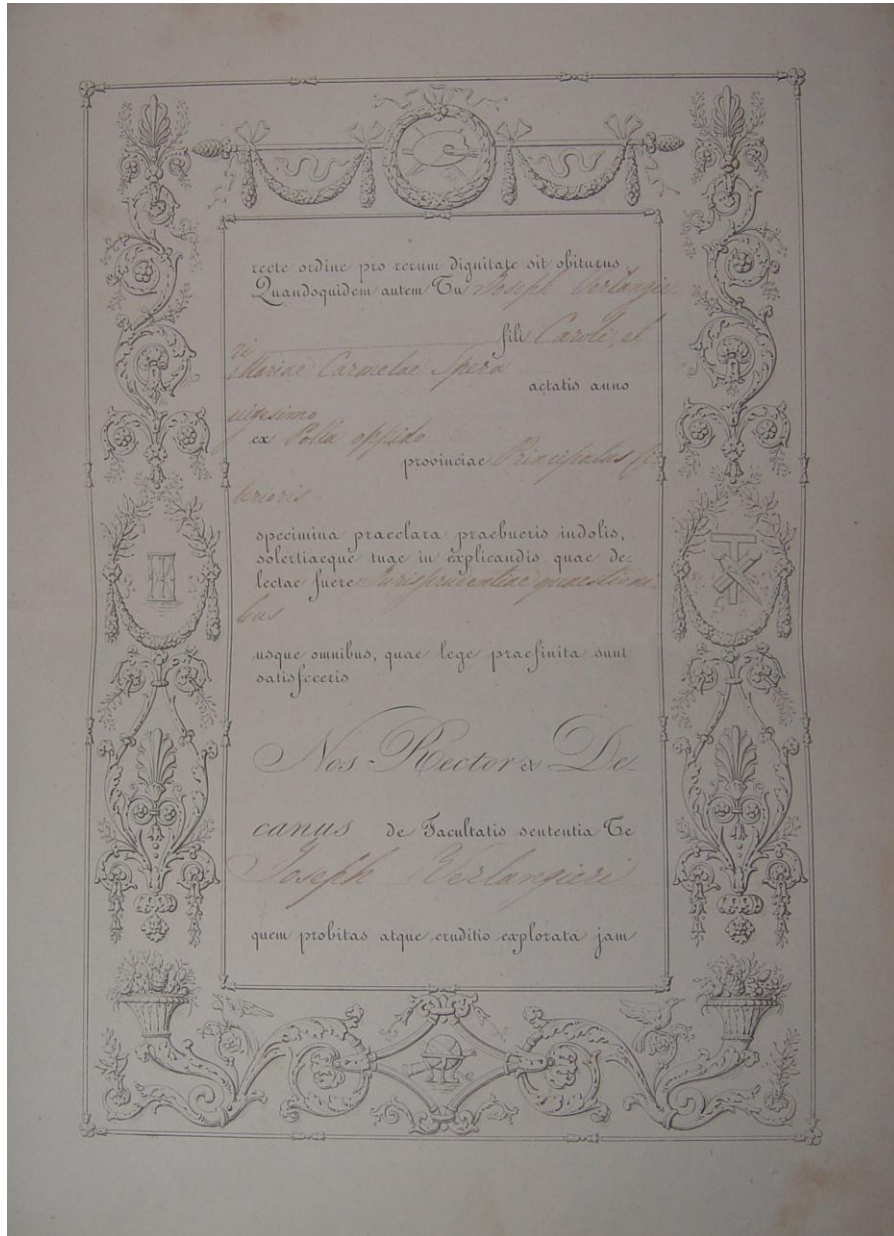 recte ordine pro rerum dignitate sit obiturus
Quandoquidem autem Tu Joseph Verlangie-
ri fili Caroli, et
Mariae Carmelae Spera
aetatis anno
vigesimo
ex Polla oppido
provinciae Principatus Ci-
terioris
specimina praeclara praebueris indolis,
solertiaeque tuae in explicandis quae de-
lectae fuere Jurisprudentiae quaestioni-
bus
usque omnibus, quae lege praefinita sunt
satisfeceris
Nos Rector et De-
canus de Facultatis sententia Te
Joseph Verlangieri
quem probitas atque eruditio explorata jam